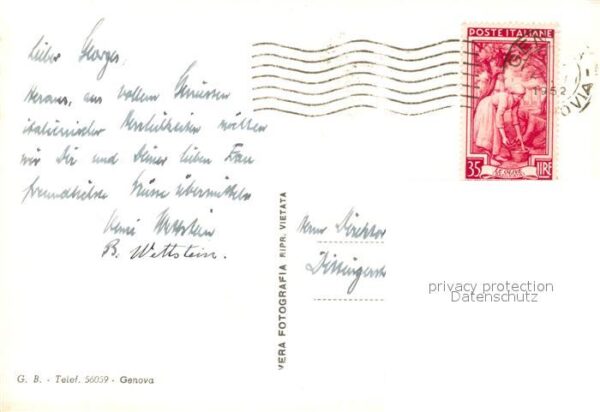 Lieber Georges,
Heraus, aus vollem Geniessen
italienischer Köstlichkeiten möchten
wir Dir und Deiner lieben Frau
freundliche Grüsse übermitteln
Wettstein
B. Wettstein.
G. B. - Telef. 56059 - Genova
VERA FOTOGRAFIA RIPR. VIETATA
POSTE ITALIANE
GENOVA
1952
35 LIRE
Herrn Direktor
privacy protection
Datenschutz